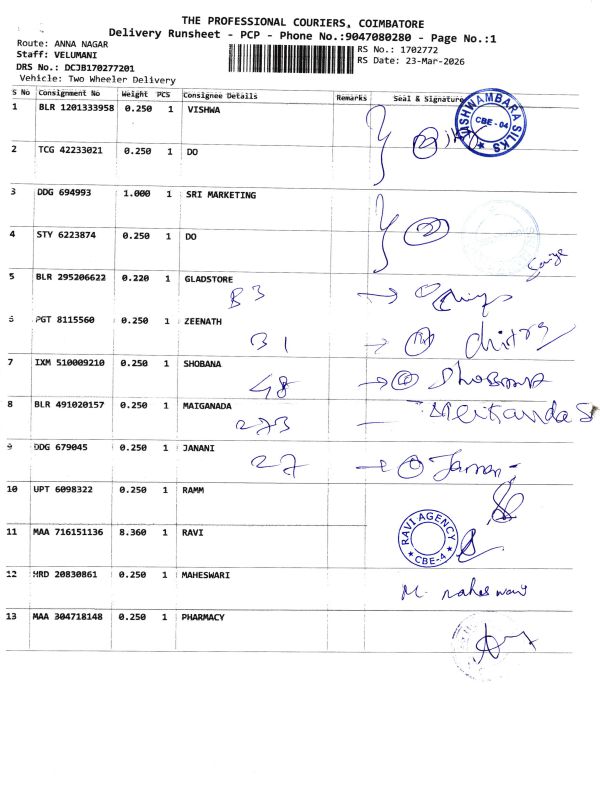 THE PROFESSIONAL COURIERS, COIMBATORE
Delivery Runsheet - PCP - Phone No.:9047080280 - Page No.:1
Route: ANNA NAGAR
RS No.: 1702772
Staff: VELUMANI
RS Date: 23-Mar-2026
DRS No.: DCJB170277201
Vehicle: Two Wheeler Delivery
S No Consignment No Weight PCS Consignee Details Remarks Seal & Signature
1 BLR 1201333958 0.250 1 VISHWA
VISHWAMBARA SILKS CBE - 04
2 TCG 42233021 0.250 1 DO
2
3 DDG 694993 1.000 1 SRI MARKETING
2
4 STY 6223874 0.250 1 DO
5 BLR 295206622 0.220 1 GLADSTORE
B3
6 PGT 8115560 0.250 1 ZEENATH
31 Chitra
7 IXM 510009210 0.250 1 SHOBANA
48 Shobana
8 BLR 491020157 0.250 1 MAIGANADA
273 Meikanda S
9 DDG 679045 0.250 1 JANANI
27 Janani
10 UPT 6098322 0.250 1 RAMM
11 MAA 716151136 8.360 1 RAVI
RAVI AGENCY CBE-4
12 HRD 20830861 0.250 1 MAHESWARI
M. maheswari
13 MAA 304718148 0.250 1 PHARMACY